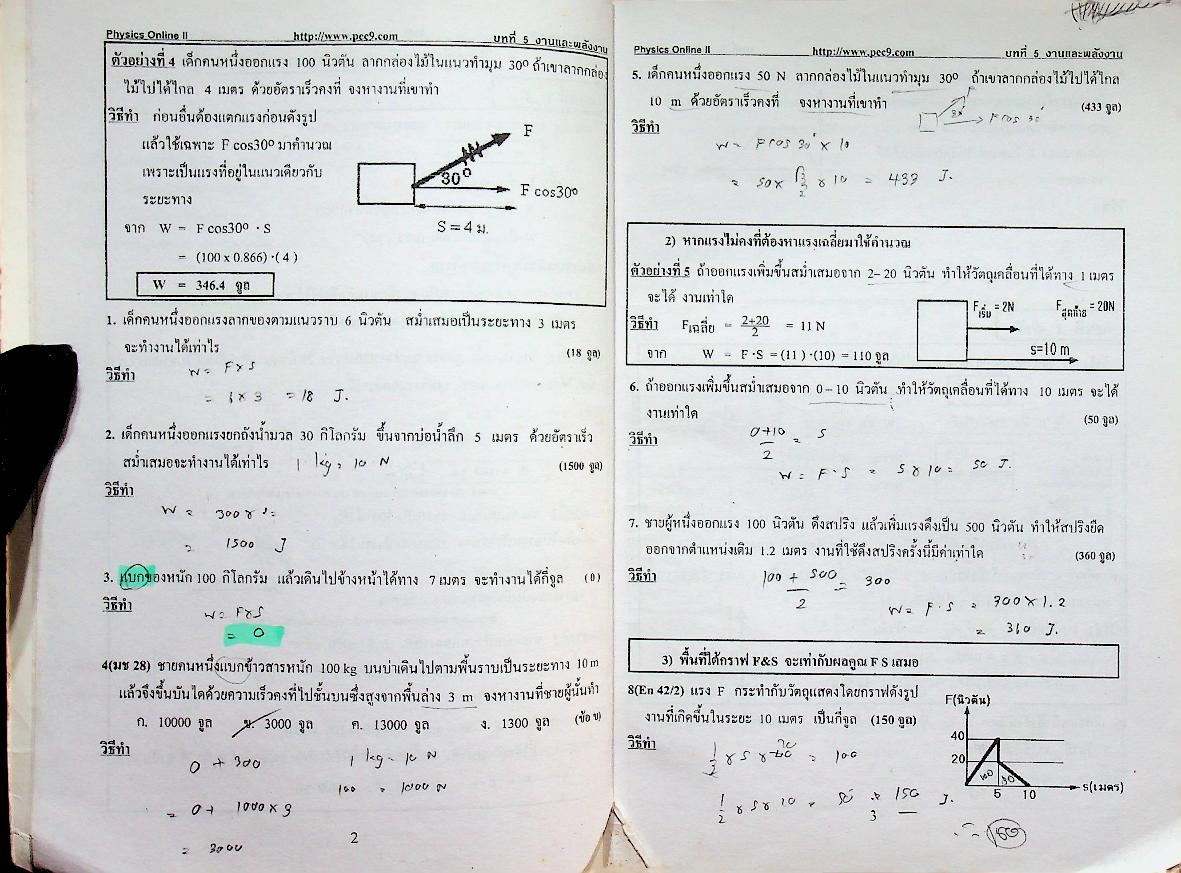 Physics Online II http://www.pec9.com บทที่ 5 งานและพลังงาน
ตัวอย่างที่ 4 เด็กคนหนึ่งออกแรง 100 นิวตัน ลากกล่องไม้ในแนวทำมุม 30º ถ้าเขาลากกล่อง
ไม้ไปได้ไกล 4 เมตร ด้วยอัตราเร็วคงที่ จงหางานที่เขาทำ
วิธีทำ ก่อนอื่นต้องแตกแรงก่อนดังรูป
แล้วใช้เฉพาะ F cos30º มาคำนวณ
เพราะเป็นแรงที่อยู่ในแนวเดียวกับ
ระยะทาง
จาก W = F cos30º · S
= (100 x 0.866) ·( 4 )
W = 346.4 จูล
F
30º
F cos30º
S = 4 ม.
1. เด็กคนหนึ่งออกแรงลากของตามแนวราบ 6 นิวตัน สม่ำเสมอเป็นระยะทาง 3 เมตร
จะทำงานได้เท่าไร (18 จูล)
วิธีทำ W = F x S
= 6 x 3 = 18 J.
2. เด็กคนหนึ่งออกแรงยกถังน้ำมวล 30 กิโลกรัม ขึ้นจากบ่อน้ำลึก 5 เมตร ด้วยอัตราเร็ว
สม่ำเสมอจะทำงานได้เท่าไร 1 kg = 10 N (1500 จูล)
วิธีทำ
W = 300 x 5
= 1500 J
3. แบกของหนัก 100 กิโลกรัม แล้วเดินไปข้างหน้าได้ทาง 7 เมตร จะทำงานได้กี่จูล (0)
วิธีทำ
W = F x S
= 0
4(มช 28) ชายคนหนึ่งแบกข้าวสารหนัก 100 kg บนบ่าเดินไปตามพื้นราบเป็นระยะทาง 10 m
แล้วจึงขึ้นบันไดด้วยความเร็วคงที่ไปชั้นบนซึ่งสูงจากพื้นล่าง 3 m จงหางานที่ชายผู้นั้นทำ
ก. 10000 จูล ข. 3000 จูล ค. 13000 จูล ง. 1300 จูล (ข้อ ข)
วิธีทำ
0 + 300 1 kg = 10 N
100 = 1000 N
= 0 + 1000 x 3
= 3000
2
Physics Online II http://www.pec9.com บทที่ 5 งานและพลังงาน
5. เด็กคนหนึ่งออกแรง 50 N ลากกล่องไม้ในแนวทำมุม 30º ถ้าเขาลากกล่องไม้ไปได้ไกล
10 m ด้วยอัตราเร็วคงที่ จงหางานที่เขาทำ (433 จูล)
30 F cos 30
วิธีทำ
W = F cos 30 x 10
= 50 x √3/2 x 10 = 433 J.
2) หากแรงไม่คงที่ต้องหาแรงเฉลี่ยมาใช้คำนวณ
ตัวอย่างที่ 5 ถ้าออกแรงเพิ่มขึ้นสม่ำเสมอจาก 2– 20 นิวตัน ทำให้วัตถุเคลื่อนที่ได้ทาง 1 เมตร
จะได้ งานเท่าใด
วิธีทำ Fเฉลี่ย = 2+20/2 = 11 N
จาก W = F ·S = (11 ) ·(10) = 110 จูล
Fเริ่ม = 2N Fสุดท้าย = 20N
s=10 m
6. ถ้าออกแรงเพิ่มขึ้นสม่ำเสมอจาก 0 – 10 นิวตัน ทำให้วัตถุเคลื่อนที่ได้ทาง 10 เมตร จะได้
งานเท่าใด (50 จูล)
วิธีทำ 0+10/2 = 5
W = F · S = 5 x 10 = 50 J.
7. ชายผู้หนึ่งออกแรง 100 นิวตัน ดึงสปริง แล้วเพิ่มแรงดึงเป็น 500 นิวตัน ทำให้สปริงยืด
ออกจากตำแหน่งเดิม 1.2 เมตร งานที่ใช้ดึงสปริงครั้งนี้มีค่าเท่าใด (360 จูล)
วิธีทำ 100 + 500/2 = 300
W = F · S = 300 x 1.2
= 360 J.
3) พื้นที่ใต้กราฟ F&S จะเท่ากับผลคูณ F S เสมอ
8(En 42/2) แรง F กระทำกับวัตถุแสดงโดยกราฟดังรูป
งานที่เกิดขึ้นในระยะ 10 เมตร เป็นกี่จูล (150 จูล)
วิธีทำ
1/2 x 5 x 40 = 100
1/2 x 5 x 20 = 50 = 150 J.
150
F(นิวตัน)
40
20
100 50
5 10 s(เมตร)